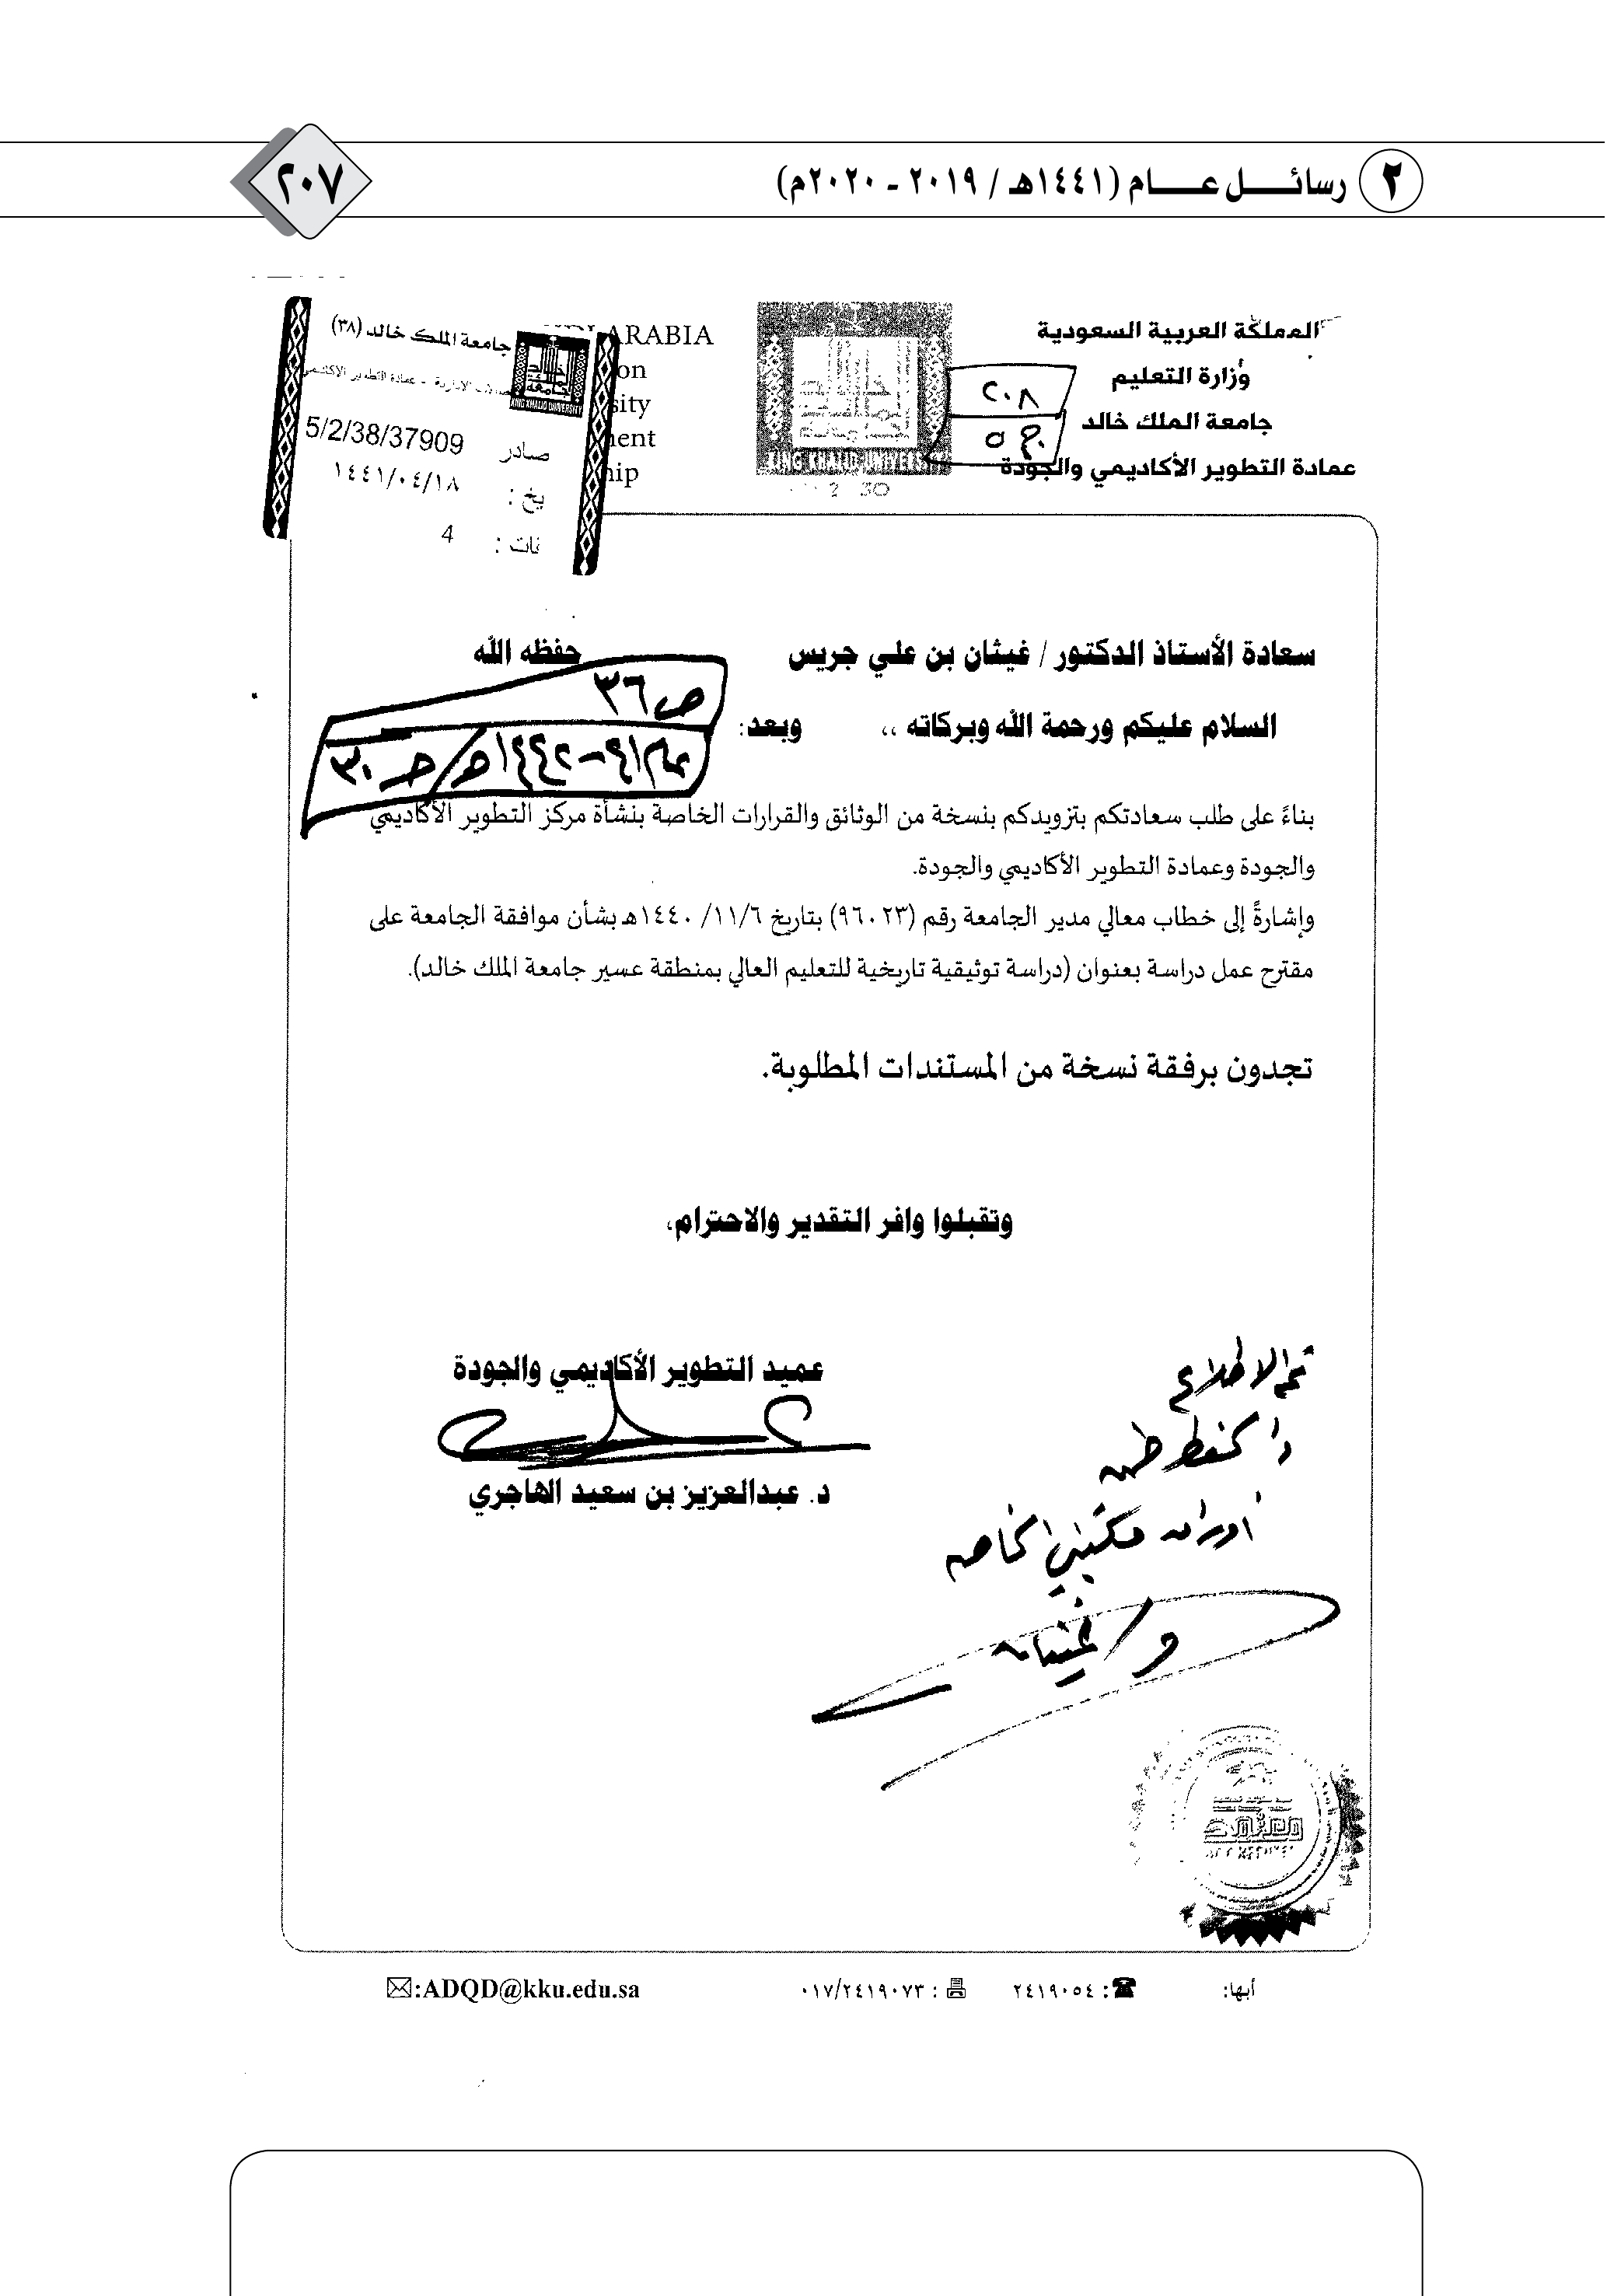 ٢ رسائل عام (١٤٤١هـ / ٢٠١٩ - ٢٠٢٠م)
٢٠٧
المملكة العربية السعودية
وزارة التعليم
جامعة الملك خالد
عمادة التطوير الأكاديمي والجودة
٢٠٨
KING KHALID UNIVERSITY
ARABIA
جامعة الملك خالد (٣٨)
KING KHALID UNIVERSITY
صادر 5/2/38/37909
يخ : ١٤٤١/٠٤/١٨
فات : 4
سعادة الأستاذ الدكتور / غيثان بن علي جريس حفظه الله
السلام عليكم ورحمة الله وبركاته ،، وبعد:
ص ٣٦
بناءً على طلب سعادتكم بتزويدكم بنسخة من الوثائق والقرارات الخاصة بنشأة مركز التطوير الأكاديمي
والجودة وعمادة التطوير الأكاديمي والجودة.
وإشارةً إلى خطاب معالي مدير الجامعة رقم (٩٦٠٢٣) بتاريخ ١٤٤٠/١١/٦هـ بشأن موافقة الجامعة على
مقترح عمل دراسة بعنوان (دراسة توثيقية تاريخية للتعليم العالي بمنطقة عسير جامعة الملك خالد).
تجدون برفقة نسخة من المستندات المطلوبة.
وتقبلوا وافر التقدير والاحترام،
عميد التطوير الأكاديمي والجودة
د. عبدالعزيز بن سعيد الهاجري
تم الاطلاع
أوراق مكتبتي الخاصة
معتمد
أبها: ☎: ٢٤١٩٠٥٤ : ٠١٧/٢٤١٩٠٧٣ ✉:ADQD@kku.edu.sa